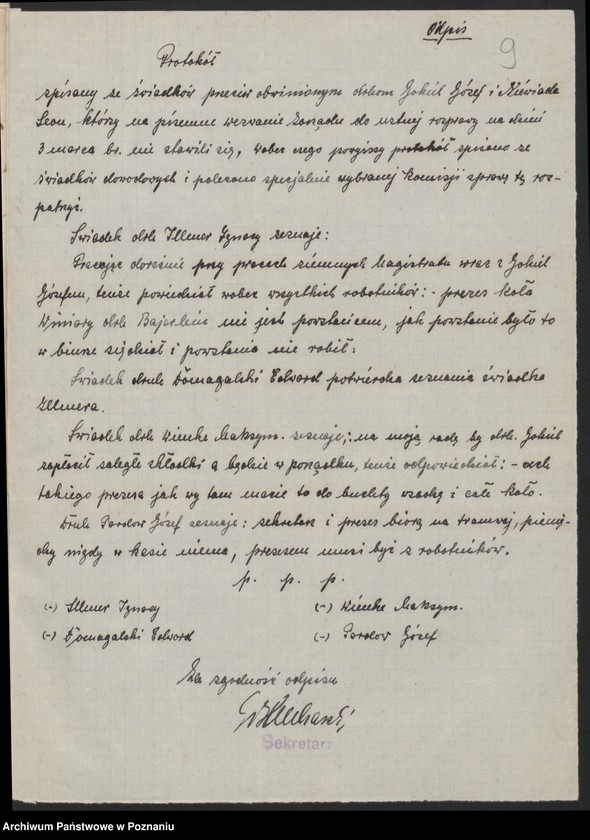 Odpis
9
Protokół
spisany ze świadków przeciw obwinianym druhom Gokiel Józef i Niewiada
Leon, którzy na pisemne wezwanie zarządu do ustnej rozprawy na dzień
3 marca br. nie stawili się, wobec czego powyższy protokół spisano ze
świadków dowodowych i polecono specjalnie wybranej komisji sprawę tę roz-
patrzyć.
Świadek druh Illmer Ignacy zeznaje:
Pracując doraźnie przy pracach ziemnych Magistratu wraz z Gokiel
Józefem, tenże powiedział wobec wszystkich robotników: - prezes koła
Winiary druh Bajerlein nie jest powstańcem, jak powstanie było to
w biurze siedział i powstania nie robił.
Świadek druh Domagalski Edward potwierdza zeznania świadka
Illmera.
Świadek druh Wienke Maksym. zeznaje: na moją radę by druh. Gokiel
zapłacił zaległe składki a będzie w porządku, tenże odpowiedział: - och
takiego prezesa jak wy tam macie to do buchty wsadzę i całe koło.
Druh Pardow Józef zeznaje: sekretarz i prezes biorą na tramwaj, pienią-
dzy nigdy w kasie niema, prezesem musi być z robotników.
p. p. p.
(-) Illmer Ignacy (-) Wienke Maksym.
(-) Domagalski Edward (-) Pardow Józef
Za zgodność odpisu
Sekretarz
Archiwum Państwowe w Poznaniu